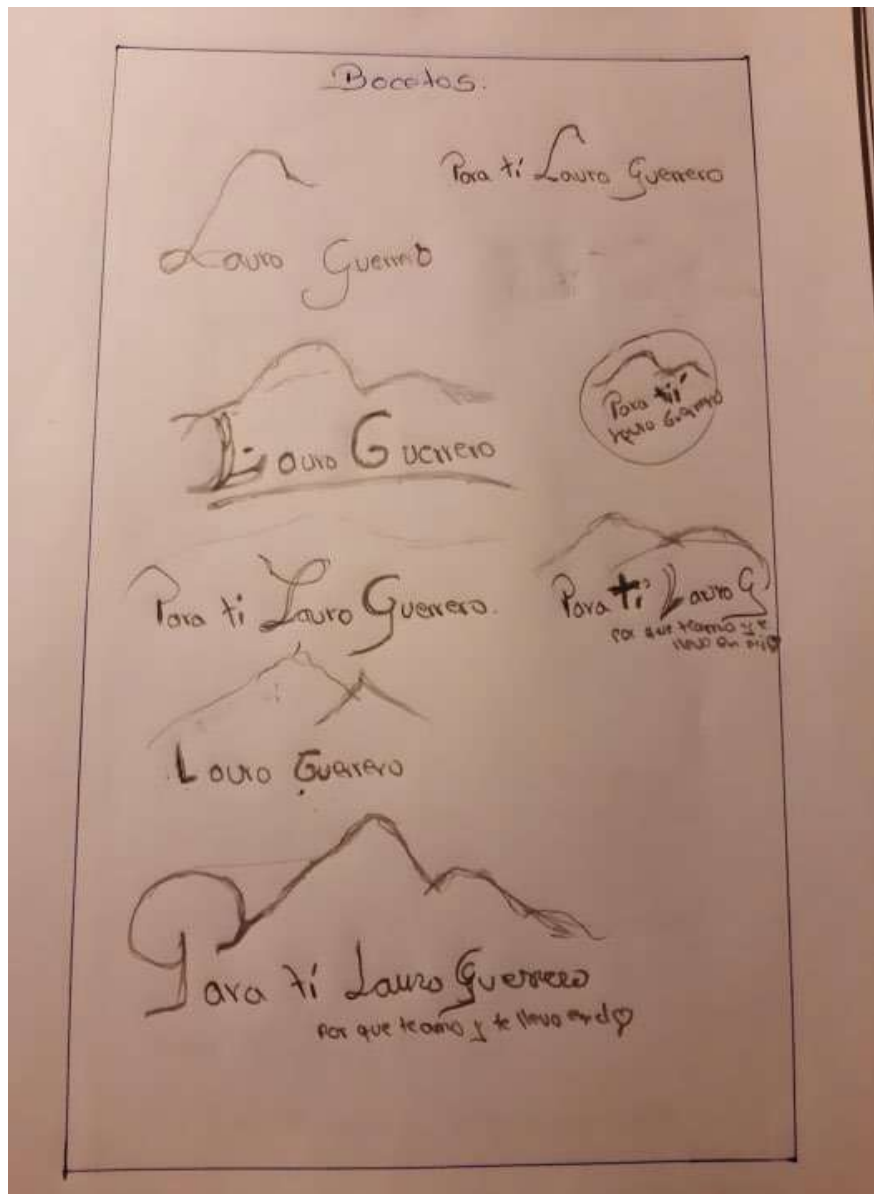 Bocetos.
Lauro Guerrero
Para ti Lauro Guerrero
Lauro Guerrero
Para ti
Lauro Guerrero
Para ti Lauro Guerrero.
Para ti Lauro G
por que te amo y te
llevo en
Lauro Guerrero
Para tí Lauro Guerrero
por que te amo y te llevo en el